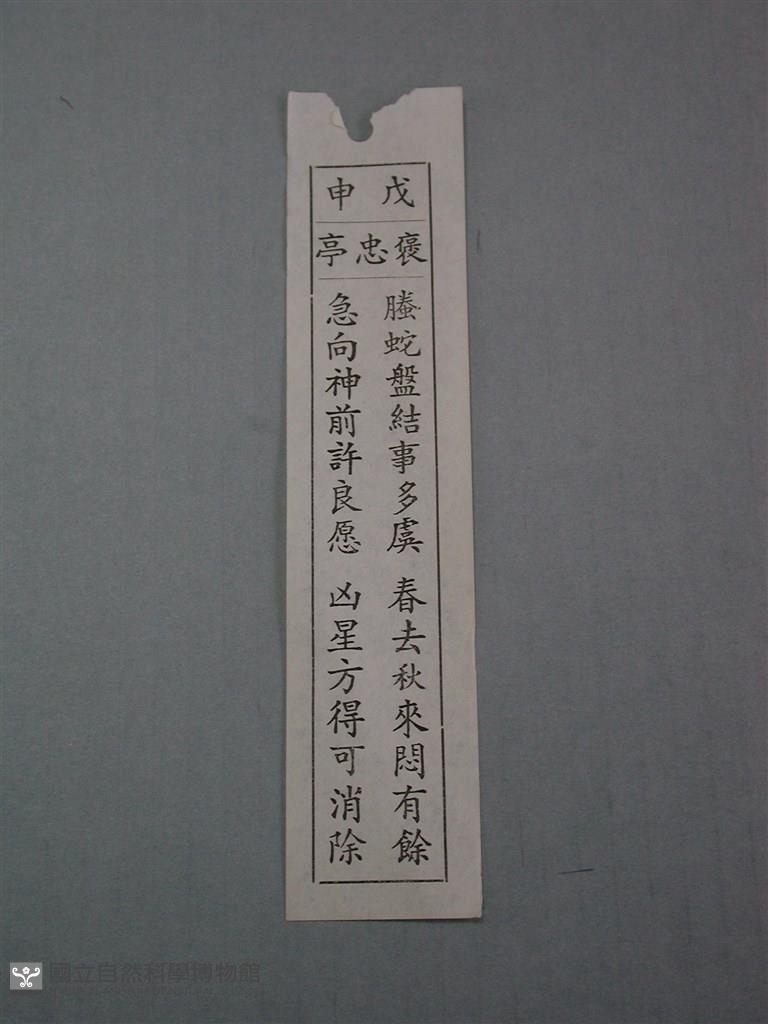 戊申
褒忠亭
螣蛇盤結事多虞 春去秋來悶有餘
急向神前許良愿 凶星方得可消除
國立自然科學博物館